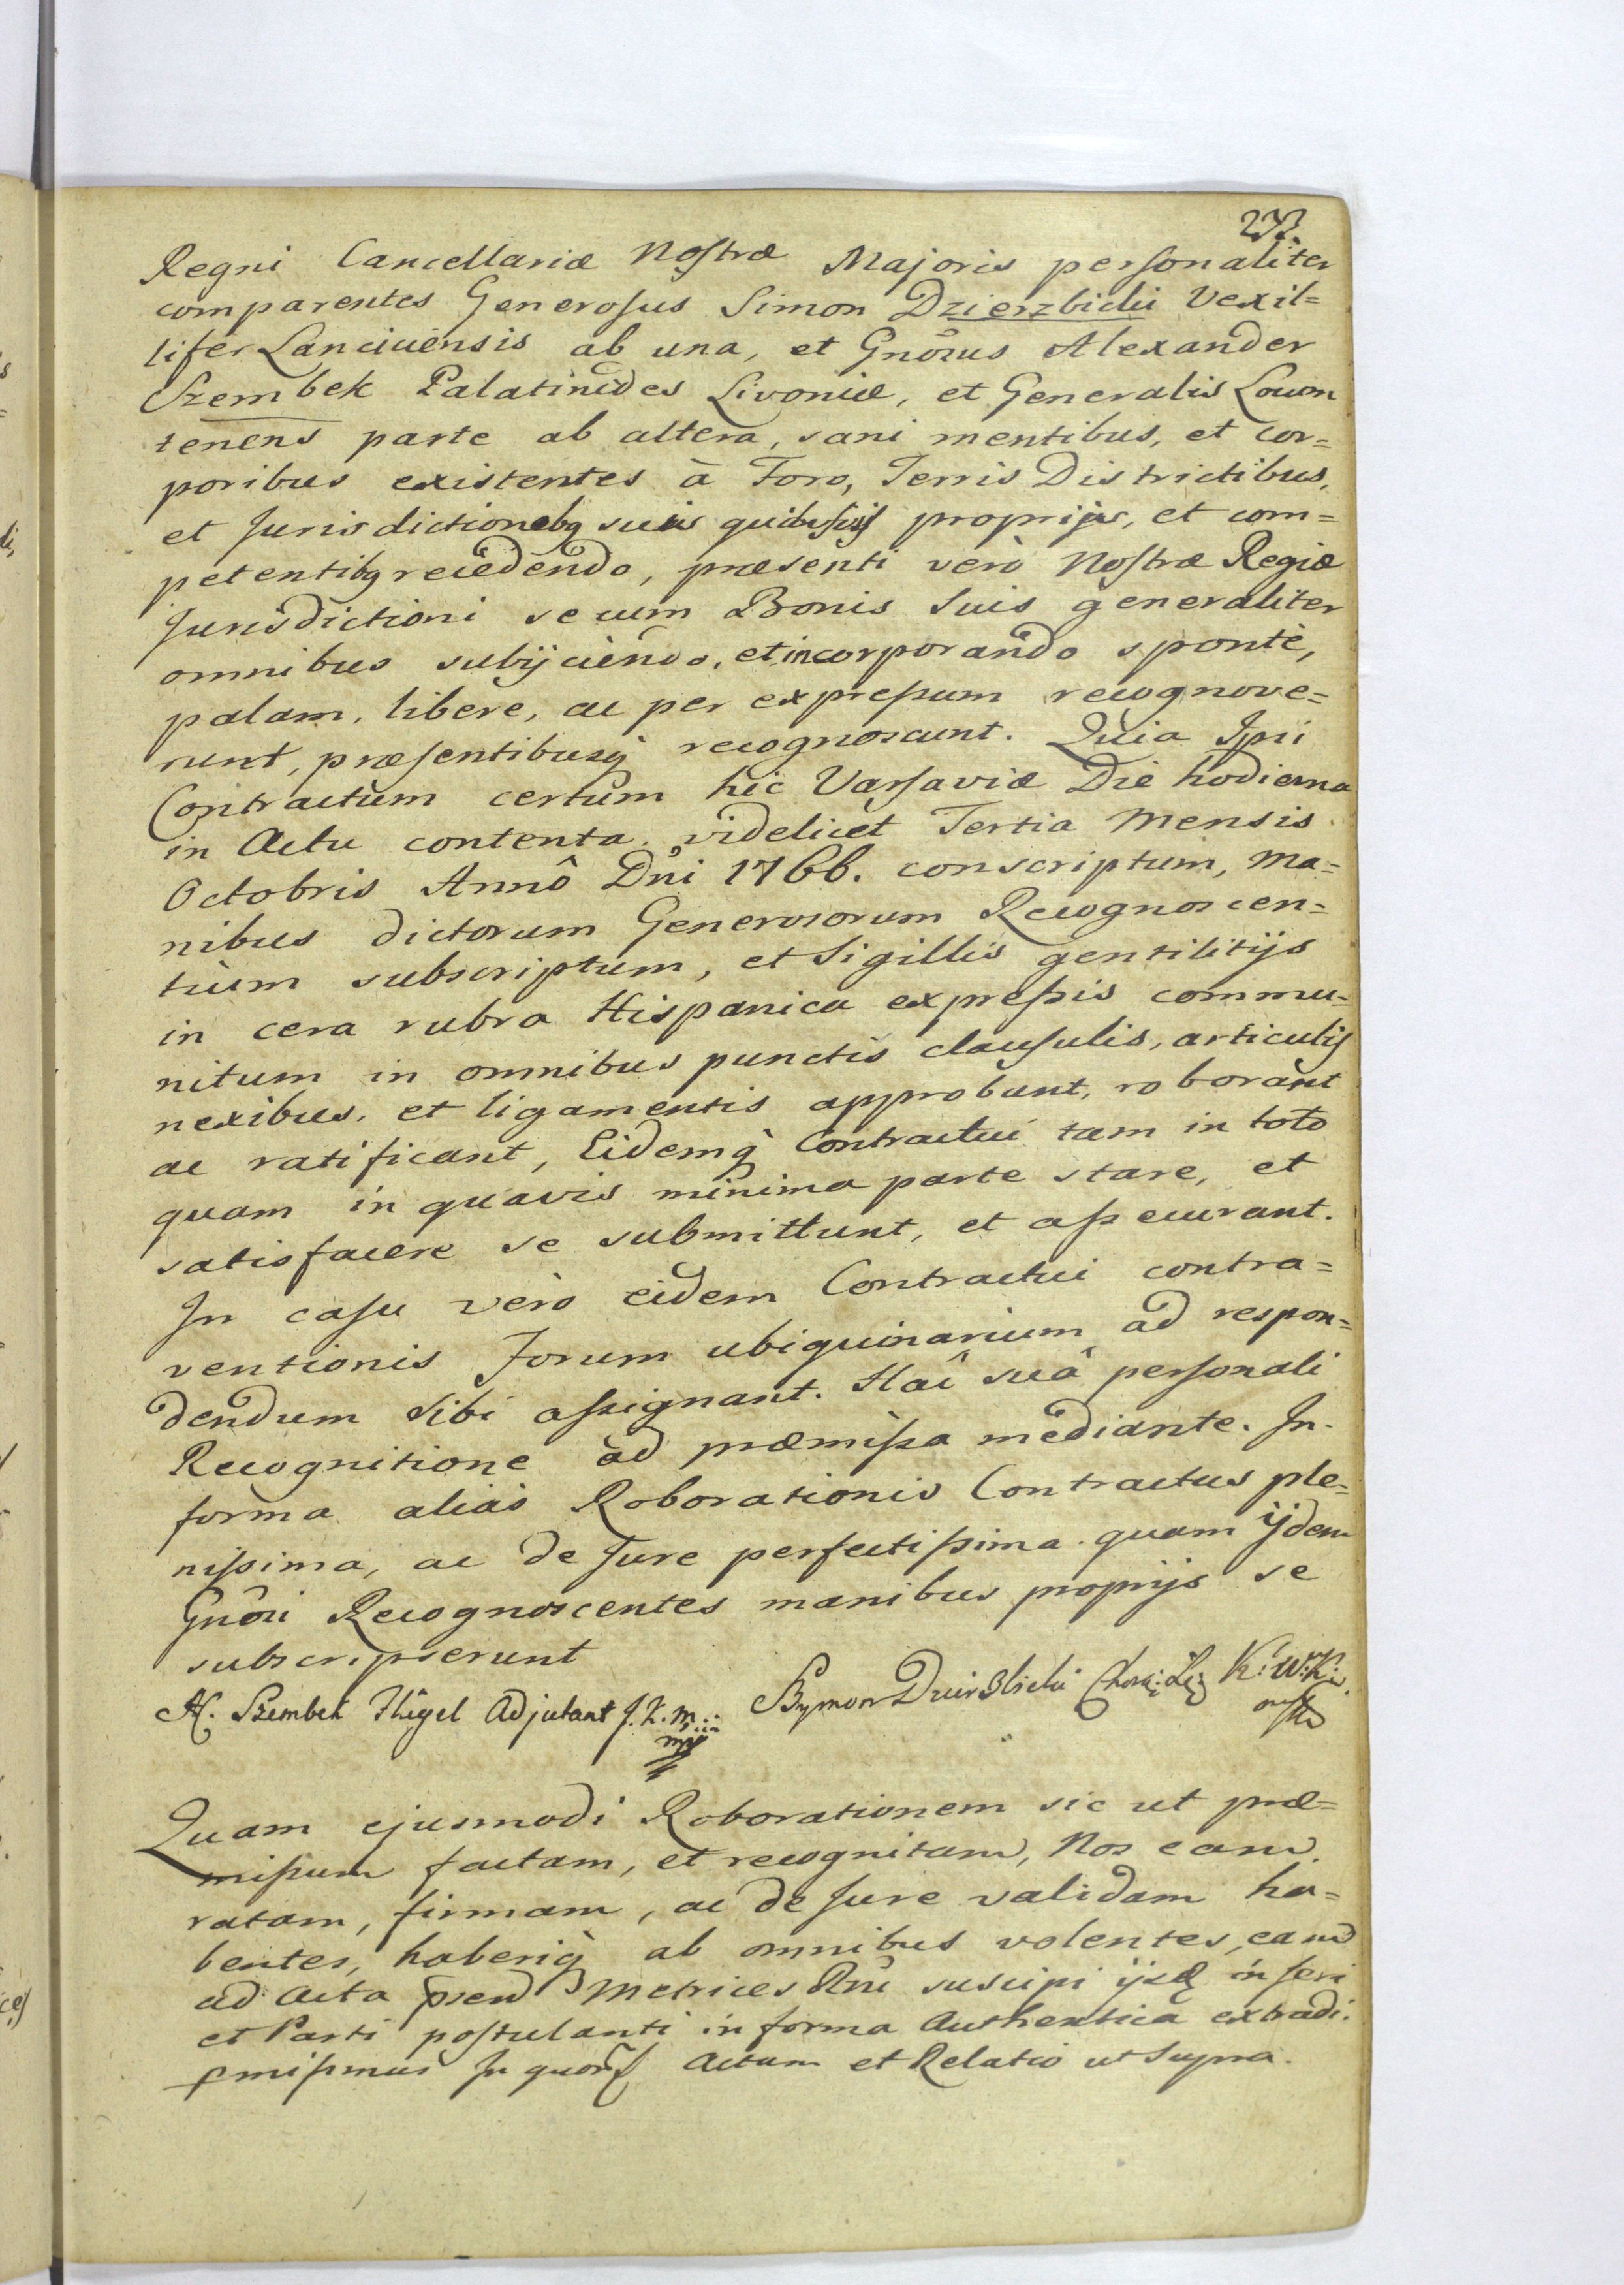 233
Regni Cancellariæ Nostræ Majoris personaliter
comparentes Generosus Simon Dzierzbicki Vexil=
lifer Lanciciensis ab una, et Gnosus Alexander
Szembek Palatinides Livoniæ, et Generalis Locum
tenens parte ab altera, sani mentibus, et cor=
poribus existentes à Foro, Terris Districtibus,
et Jurisdictionebq suis quibusvis proprijs, et com=
petentibq recedendo, præsenti verò Nostræ Regiæ
Jurisdictioni se cum Bonis Suis generaliter
omnibus subijciendo, et incorporando spontè,
palam, libere, ac per expressum recognove=
runt, præsentibusq recognoscunt. Quia Ipsi
Contractum certum hic Varsaviæ Die hodierna
in Actu contenta, videlicet Tertia Mensis
Octobris Annô Dni 1766. conscriptum, Ma=
nibus dictorum Generosorum Recognoscen=
tium subscriptum, et Sigillis gentilitijs
in cera rubra Hispanica expressis commu=
nitum in omnibus punctis clausulis, articulis
nexibus, et ligamentis approbant, roborant
ac ratificant, Eidemq Contractui tam in toto
quam in quavis minima parte stare, et
satisfacere se submittunt, et assecurant.
In casu verò eidem Contractui contra=
ventionis Forum ubiquinarium ad respon=
dendum Sibi assignant. Hac suâ personali
Recognitione ad præmissa mediante. In
forma alias Roborationis Contractus ple=
nissima, ac de Jure perfectissima quam ijdem
Gnosi Recognoscentes manibus proprijs se
subscripserunt
A. Szembek Fligel Adjutant J. K. M. mp
Szymon Dzierzbicki Chorą: Łę: K: W: K:
Quam ejusmodi Roborationem sic ut præ=
missum factam, et recognitam, Nos eam
ratam, firmam, ac de Jure validam ha=
bentes, haberiq ab omnibus volentes, eand
ad Acta præsen Metrices Rni suscipi ijsq inseri
et Parti postulanti in forma Authentica extradi
pmisimus In quor Actum et Relatio ut Supra.